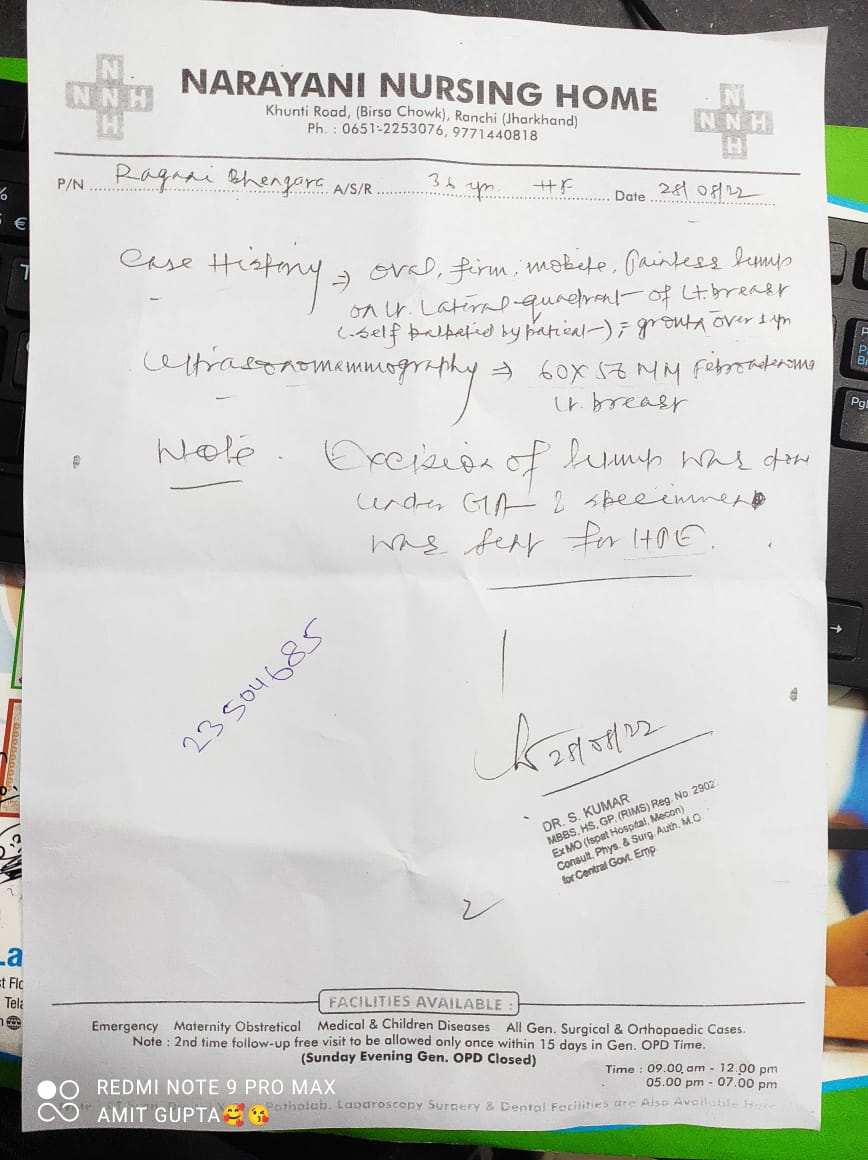 N
N N H
H
NARAYANI NURSING HOME
Khunti Road, (Birsa Chowk), Ranchi (Jharkhand)
Ph. : 0651-2253076, 9771440818
N
N N H
H
P/N Ragani Bhengara A/S/R 36 yr. HF Date 28/08/22
Case History ⇒ oval, firm, mobile, Painless lump
on Lt. Lateral quadrant of Lt. breast
(self palpated by patient) growth over 1 yr
Ultrasonomammography ⇒ 60X56 MM Fibroadenoma
Lt. breast
Note. Excision of lump was done
under GA & specimen
was sent for HPE.
23504685
28/08/22
DR. S. KUMAR
MBBS, HS, GP, (RIMS) Reg. No. 2902
Ex MO (Ispat Hospital, Mecon)
Consult, Phys. & Surg. Auth. M.O.
for Central Govt. Emp
2
FACILITIES AVAILABLE :
Emergency Maternity Obstretical Medical & Children Diseases All Gen. Surgical & Orthopaedic Cases.
Note : 2nd time follow-up free visit to be allowed only once within 15 days in Gen. OPD Time.
(Sunday Evening Gen. OPD Closed)
Time : 09.00 am - 12.00 pm
05.00 pm - 07.00 pm
Patholab, Laparoscopy Surgery & Dental Facilities are Also Available Here
REDMI NOTE 9 PRO MAX
AMIT GUPTA🥰😘